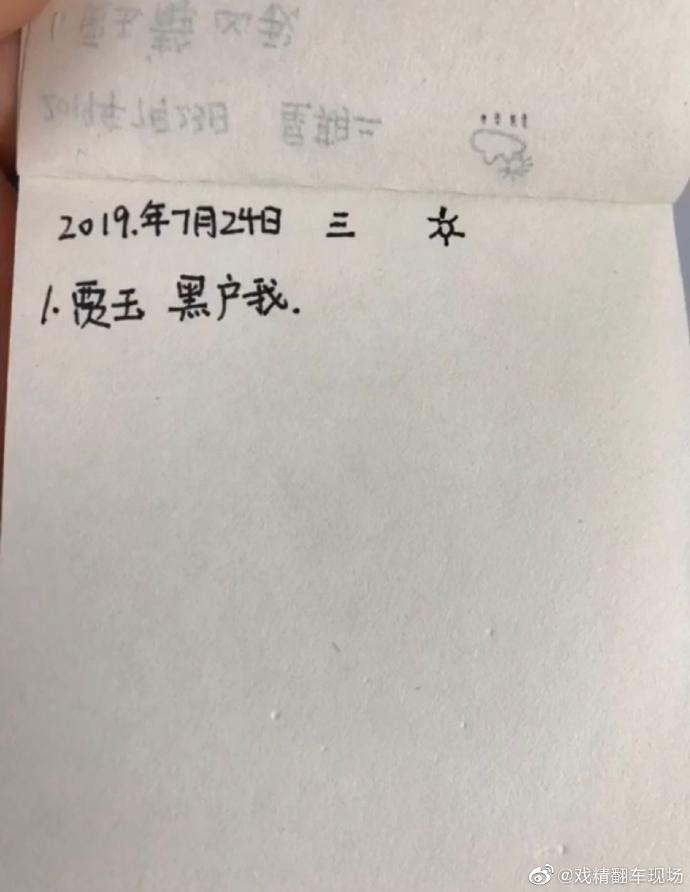 2019.年7月24日 三
1.贾玉 黑户我.
@戏精翻车现场